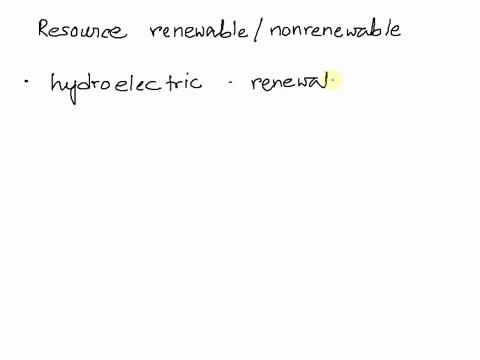 Resource renewable/nonrenewable
· hydroelectric - renewal